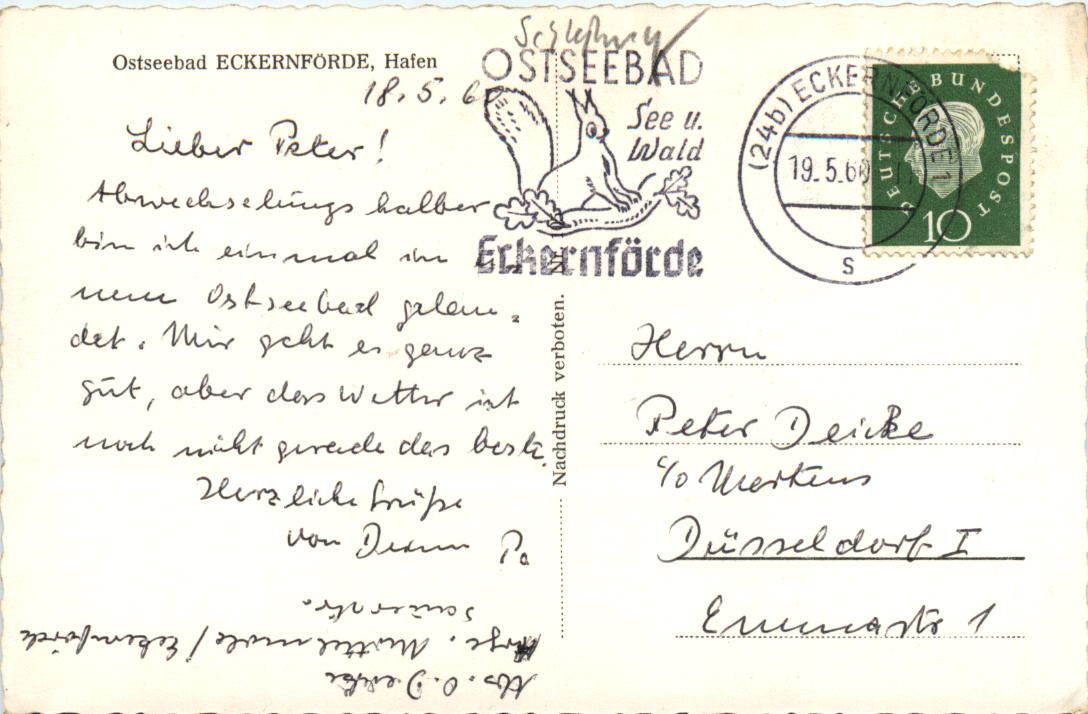 Ostseebad ECKERNFÖRDE, Hafen
18.5.60
Lieber Peter!
Abwechselungshalber
bin ich einmal in
nem Ostseebad gelan-
det. Mir geht es ganz
gut, aber das Wetter ist
noch nicht gerade das beste.
Herzliche Grüße
von Deinem Pa
Abs. O. Deicke
Eckernförde
Schleswig
OSTSEEBAD
See u.
Wald
Eckernförde
(24b) ECKERNFÖRDE 1
19.5.60
s
DEUTSCHE BUNDESPOST
10
Nachdruck verboten.
Herrn
Peter Deicke
c/o Mertens
Düsseldorf I
Emmastr 1